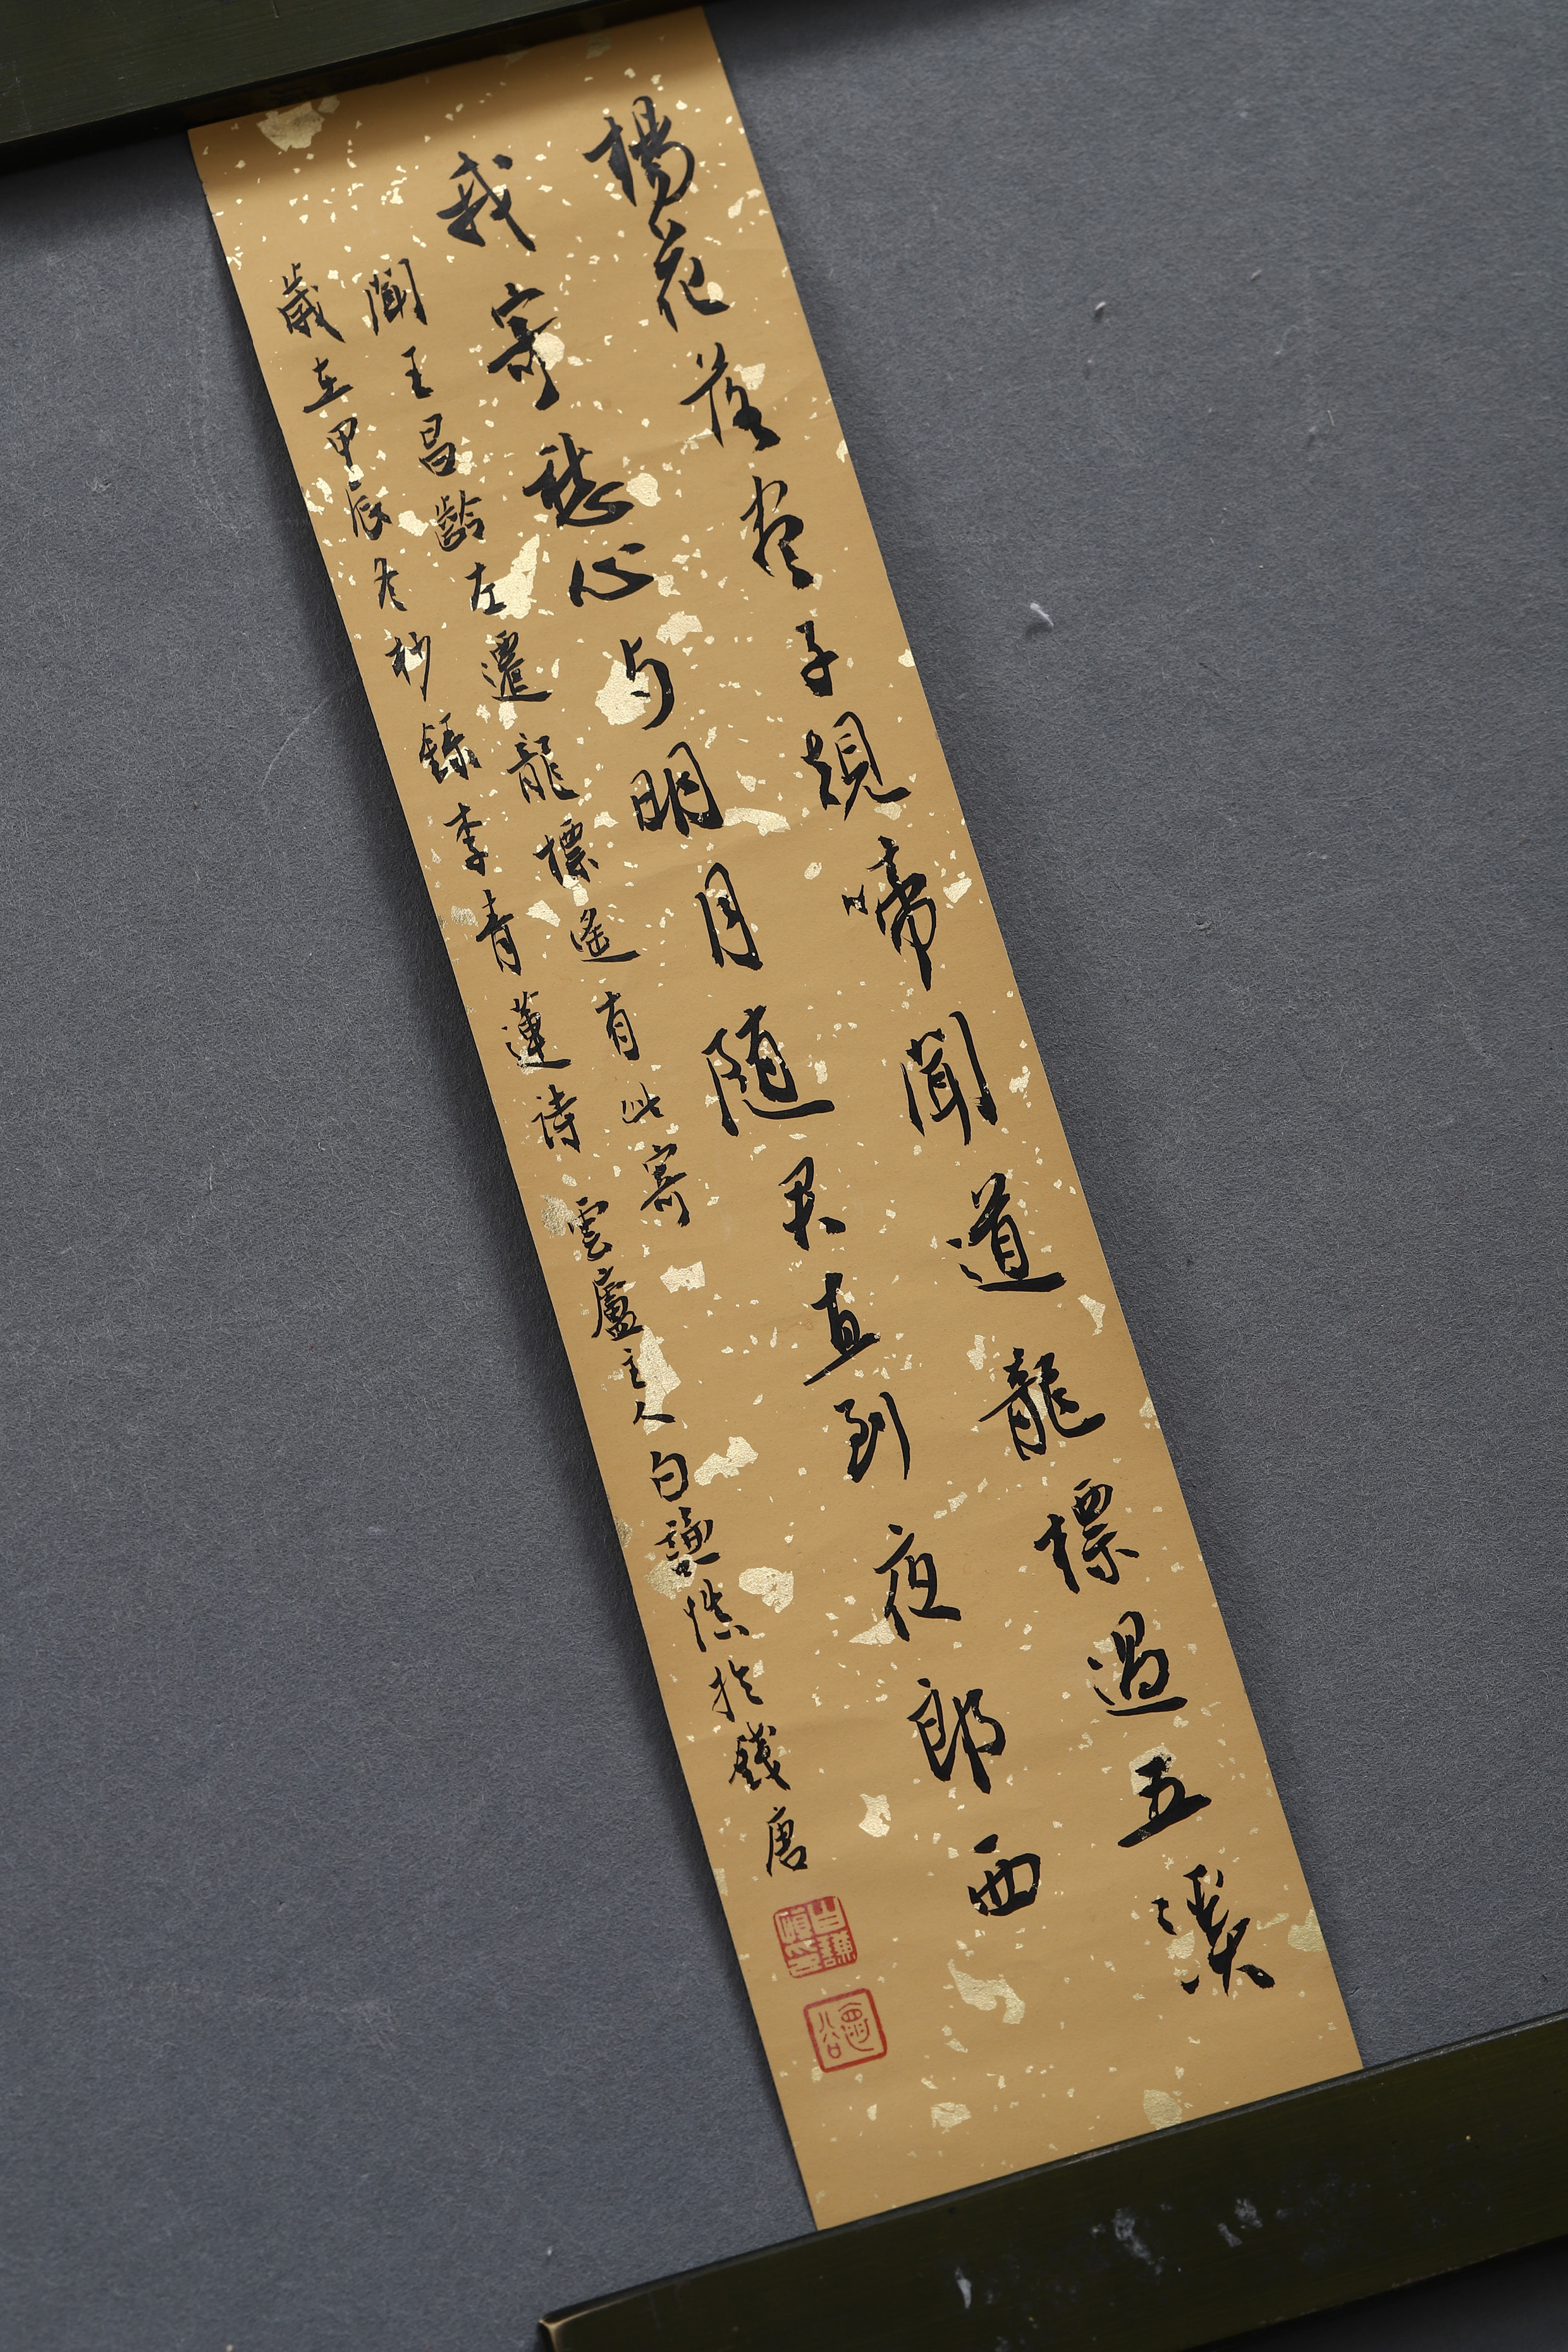 楊花落盡子規啼聞道龍標過五溪
我寄愁心与明月随君直到夜郎西
聞王昌齡左遷龍標遙有此寄
歲在甲辰冬杪錄李青蓮詩 雲廬主人白謙慎於錢唐
白謙慎